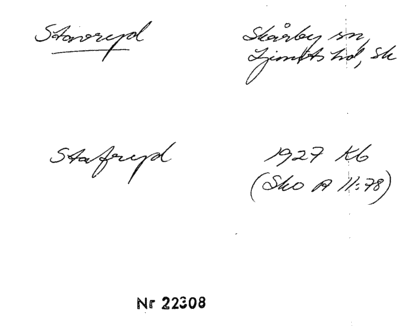 Stavreyd
Skårby sn,
Ljunits hd, Sk
Stafreyd
1927 Kb
(Sko A II:78)
Nr 22308